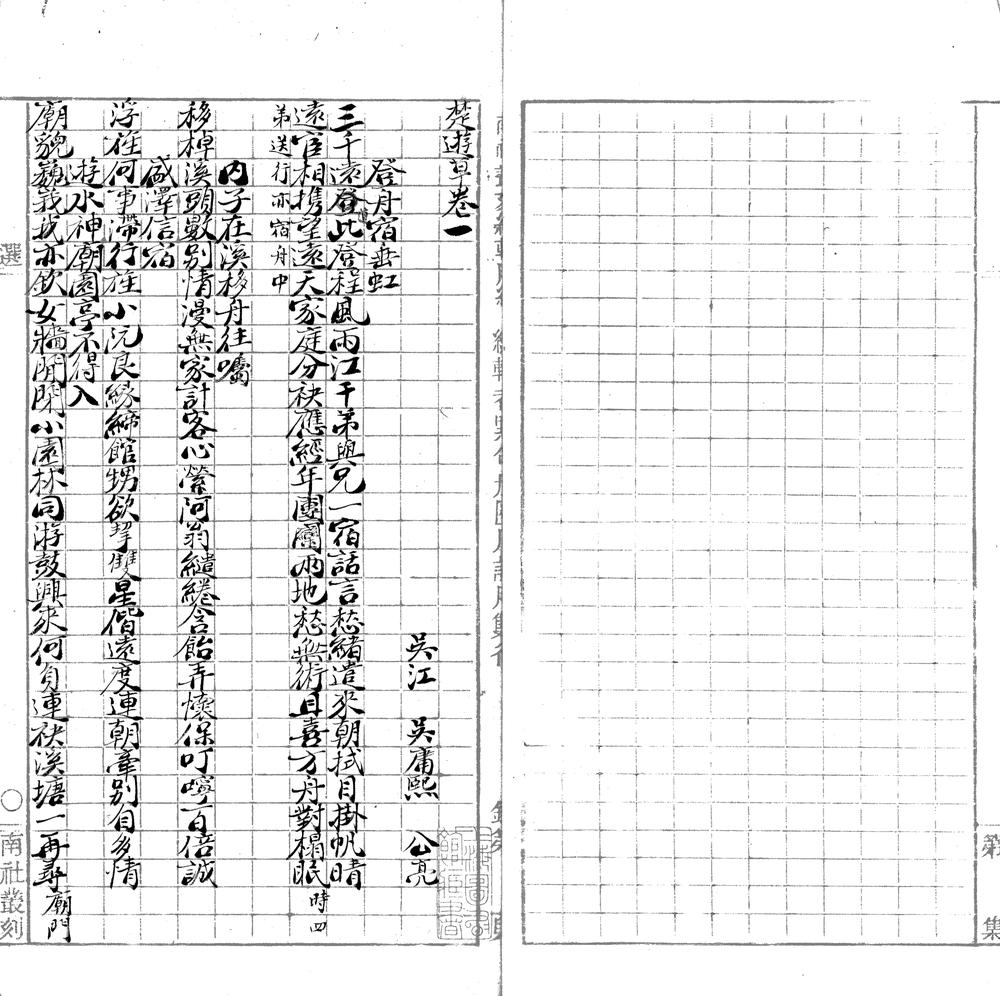 楚遊草卷一
吳江　吳庸熙　公亮
登舟宿垂虹
三千遠登此登程風雨江干弟與兄一宿話言愁緒遣來朝拭目掛帆晴
遠宦相攜望遠天家庭分袂應經年團圞兩地愁無術且喜方舟對榻眠時四
弟送行亦宿舟中
內子在溪移舟往囑
移棹溪頭數別情漫無家計客心縈阿翁繾綣含飴弄懷保叮嚀百倍誠
盛澤信宿
浮在何事滯行旌小阮良緣締館甥欲挈雙星偕遠度連朝牽別自多情
遊水神廟園亭不得入
廟貌巍峩我亦欽女牆閒閉小園林同游鼓興來何負連袂溪塘一再尋廟門
選
南社叢刻
集